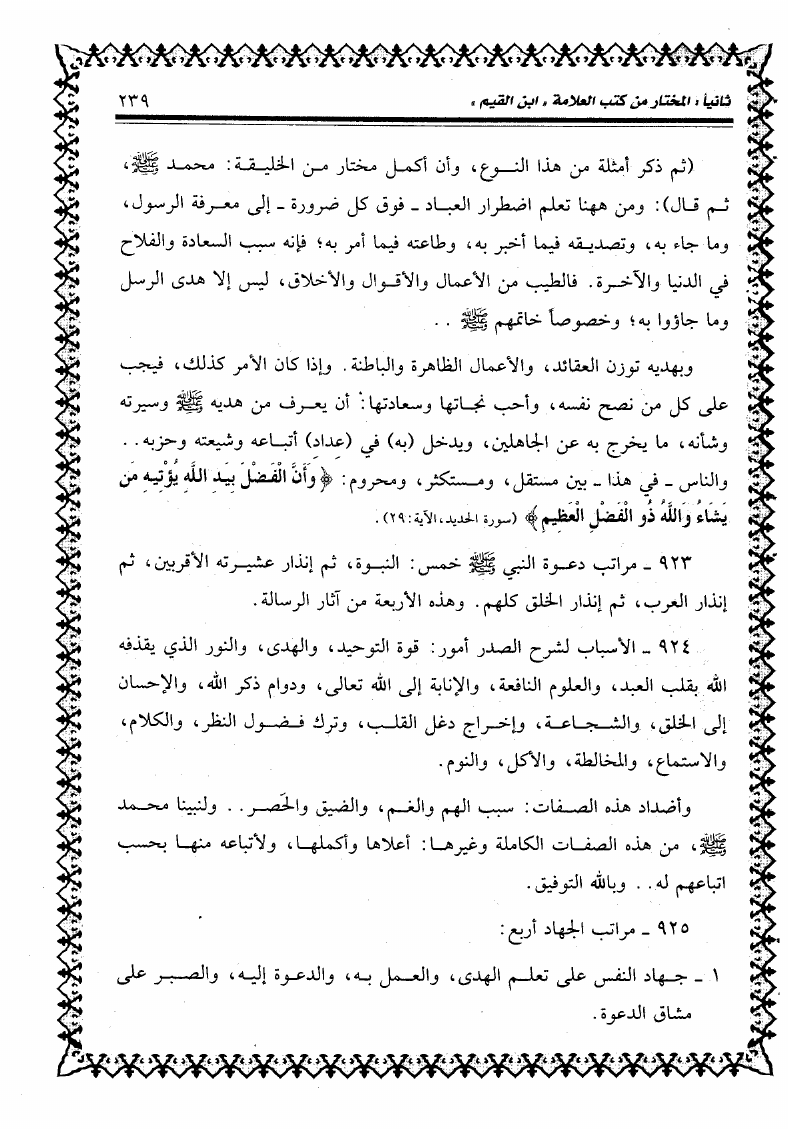 ثانياً: المختار من كتب العلامة «ابن القيم» ٢٣٩
(ثم ذكر أمثلة من هذا النوع، وأن أكمل مختار من الخليقة: محمد ﷺ،
ثم قال): ومن ههنا تعلم اضطرار العباد ـ فوق كل ضرورة ـ إلى معرفة الرسول،
وما جاء به، وتصديقه فيما أخبر به، وطاعته فيما أمر به؛ فإنه سبب السعادة والفلاح
في الدنيا والآخرة. فالطيب من الأعمال والأقوال والأخلاق، ليس إلا هدى الرسل
وما جاؤوا به؛ وخصوصاً خاتمهم ﷺ ..
وبهديه توزن العقائد، والأعمال الظاهرة والباطنة. وإذا كان الأمر كذلك، فيجب
على كل من نصح نفسه، وأحب نجاتها وسعادتها: أن يعرف من هديه ﷺ وسيرته
وشأنه، ما يخرج به عن الجاهلين، ويدخل (به) في (عداد) أتباعه وشيعته وحزبه..
والناس ـ في هذا ـ بين مستقل، ومستكثر، ومحروم: ﴿وَأَنَّ الْفَضْلَ بِيَدِ اللَّهِ يُؤْتِيهِ مَن
يَشَاءُ وَاللَّهُ ذُو الْفَضْلِ الْعَظِيمِ﴾ (سورة الحديد، الآية: ٢٩).
٩٢٣ ـ مراتب دعوة النبي ﷺ خمس: النبوة، ثم إنذار عشيرته الأقربين، ثم
إنذار العرب، ثم إنذار الخلق كلهم. وهذه الأربعة من آثار الرسالة.
٩٢٤ ـ الأسباب لشرح الصدر أمور: قوة التوحيد، والهدى، والنور الذي يقذفه
الله بقلب العبد، والعلوم النافعة، والإنابة إلى الله تعالى، ودوام ذكر الله، والإحسان
إلى الخلق، والشجاعة، وإخراج دغل القلب، وترك فضول النظر، والكلام،
والاستماع، والمخالطة، والأكل، والنوم.
وأضداد هذه الصفات: سبب الهم والغم، والضيق والحَصر.. ولنبينا محمد
ﷺ، من هذه الصفات الكاملة وغيرها: أعلاها وأكملها، ولأتباعه منها بحسب
اتباعهم له.. وبالله التوفيق.
٩٢٥ ـ مراتب الجهاد أربع:
١ ـ جهاد النفس على تعلم الهدى، والعمل به، والدعوة إليه، والصبر على
مشاق الدعوة.